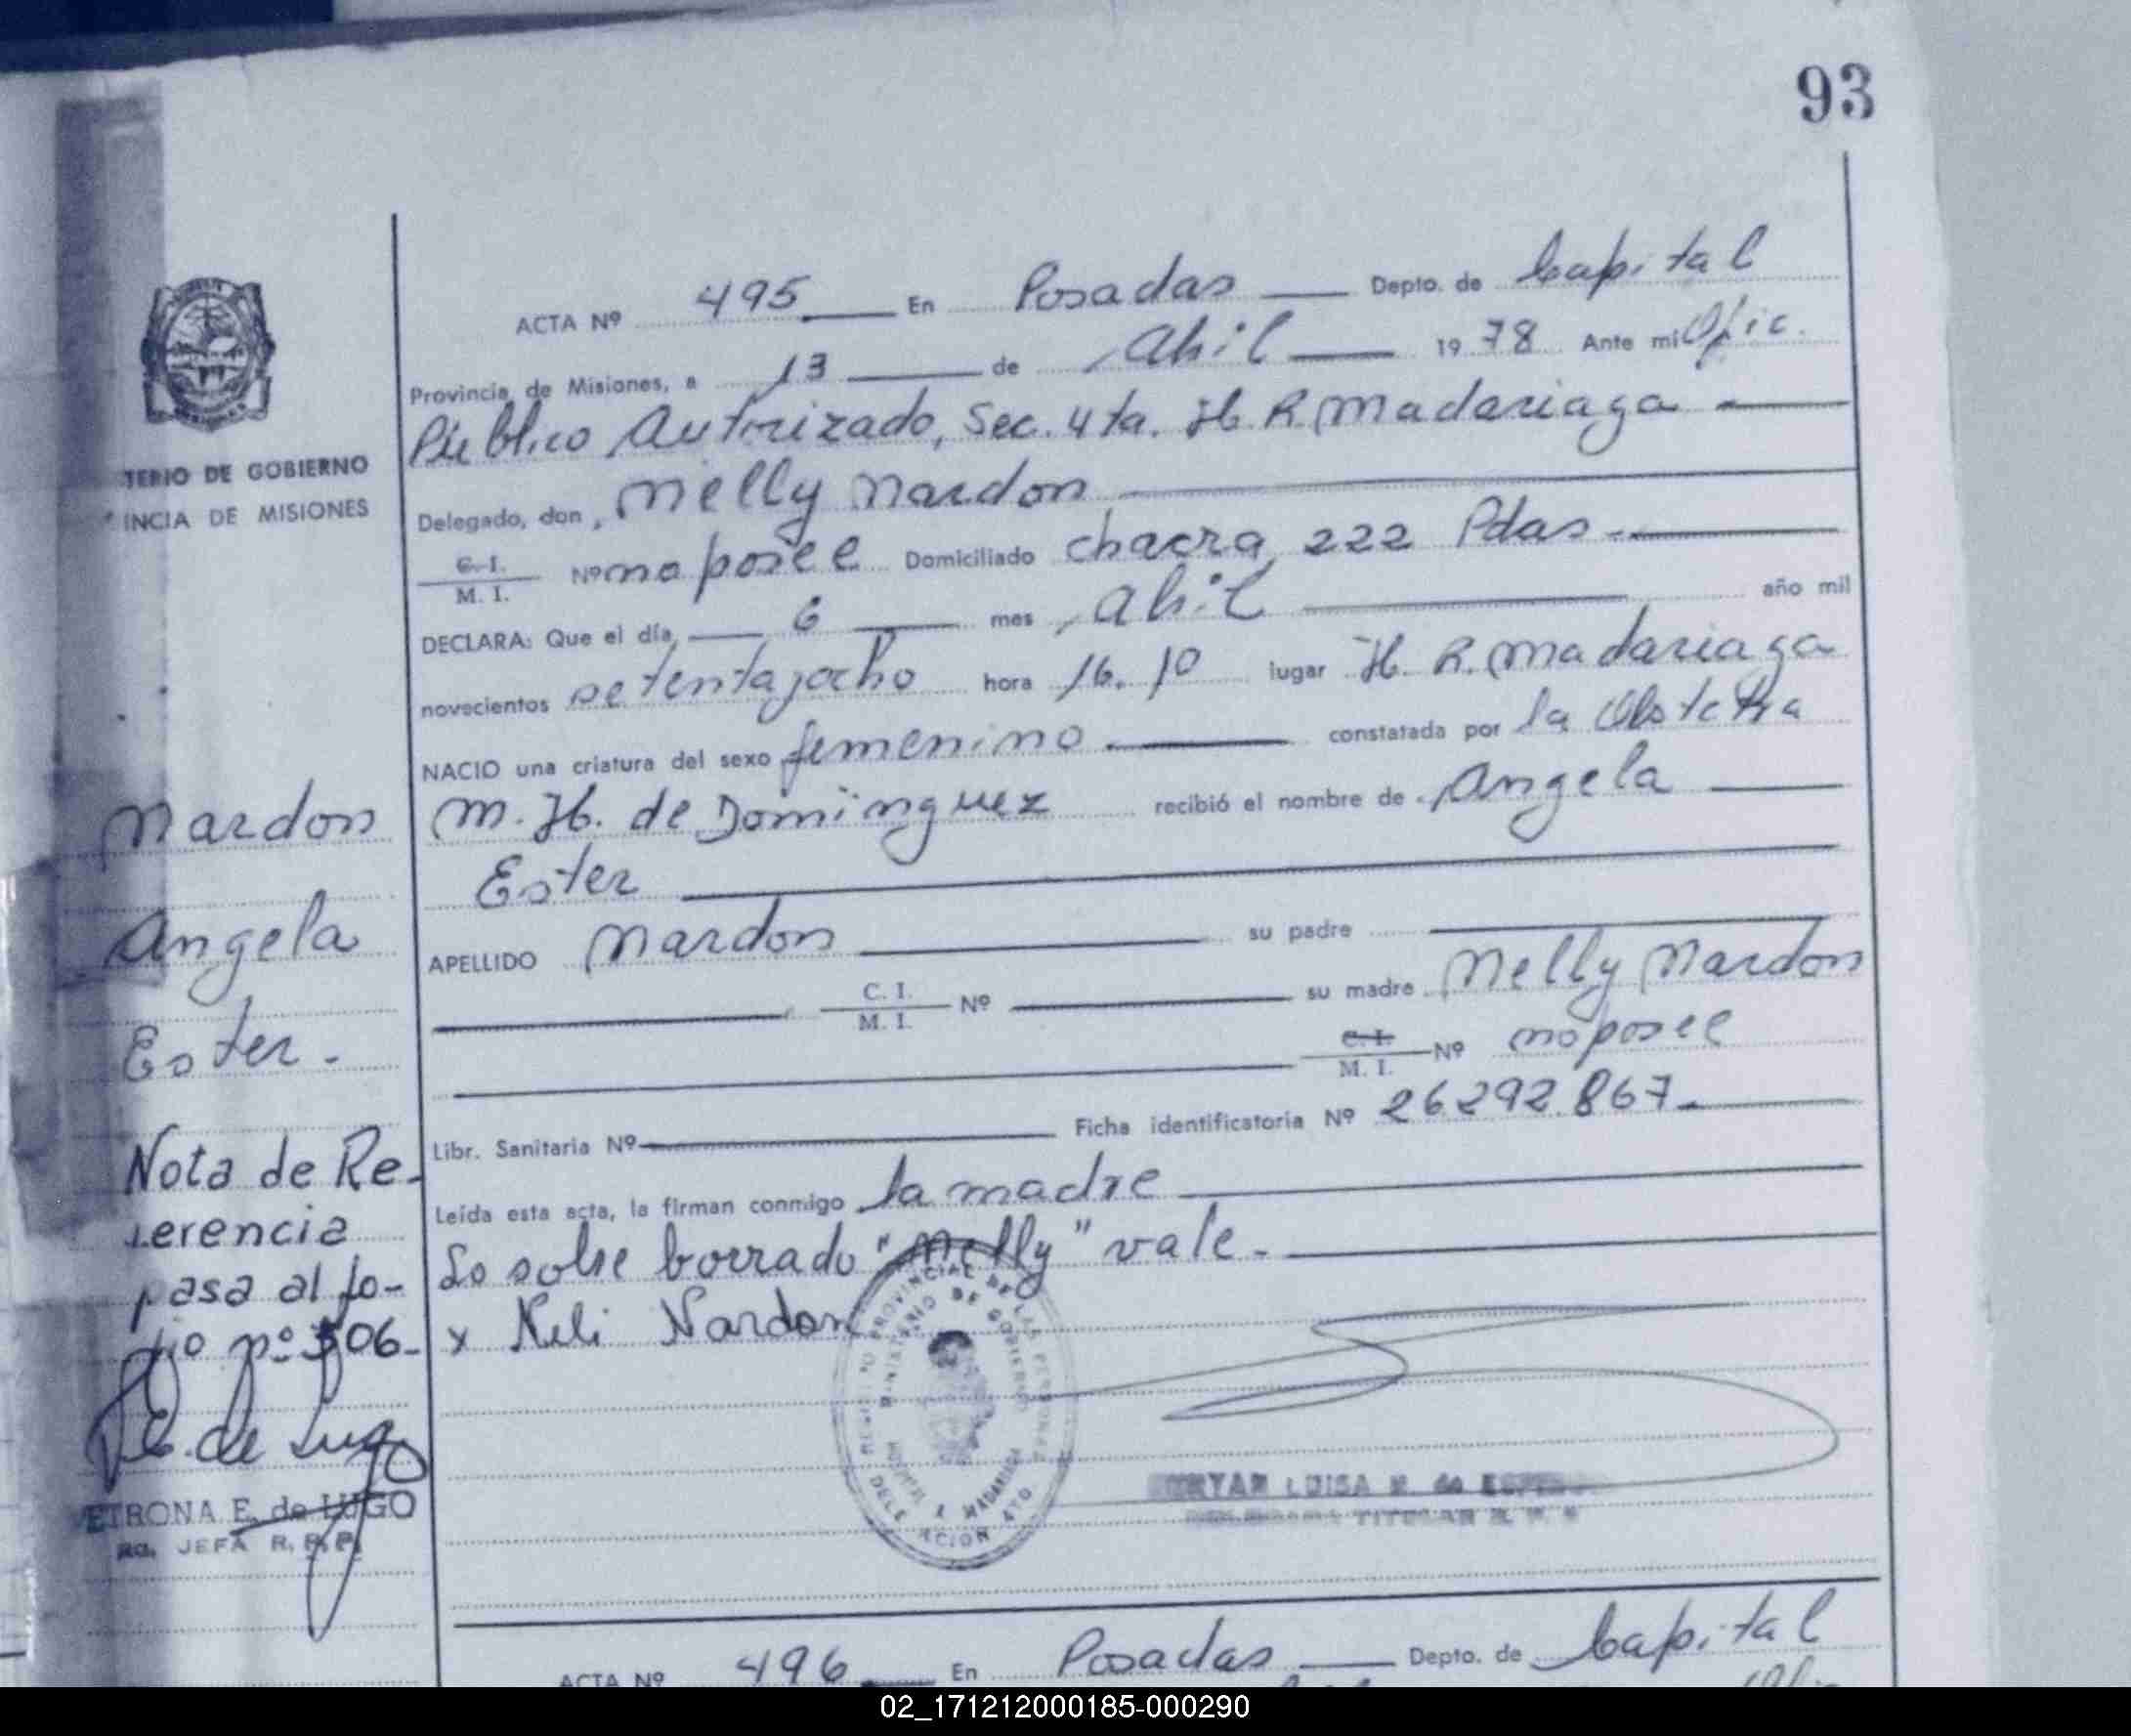 93
ACTA Nº 495 En Posadas Depto. de Capital
Provincia de Misiones, a 13 de Abril 1978 Ante mi Ofic.
Público Autorizado, Sec. 4ta. H. R. Madariaga
TERIO DE GOBIERNO
INCIA DE MISIONES
Delegado, don, Nelly Nardon
C. I. M. I. Nº no posee Domiciliado chacra 222 Pdas
DECLARA: Que el día 6 mes Abril año mil
novecientos setentayocho hora 16.10 lugar H. R. Madariaga
NACIO una criatura del sexo femenino constatada por la Obstetra
M. H. de Dominguez recibió el nombre de Angela
Ester
APELLIDO Nardon su padre
C. I. M. I. Nº su madre Nelly Nardon
C. I. M. I. Nº no posee
Libr. Sanitaria Nº Ficha identificatoria Nº 26.292.867
Leída esta acta, la firman conmigo la madre
Lo sobre borrado "Nelly" vale.
x Neli Nardon
Nardon
Angela
Ester.
Nota de Re-
ferencia
pasa al fo-
lio nº 306.
E. de Lugo
ETRONA E. de LUGO
JEFA R. P. P.
PROVINCIAL DE LAS PERSONAS
MINISTERIO DE GOBIERNO
HOSPITAL R. MADARIAGA
DELEGACION 4TO
LUISA
TITULAR
ACTA Nº 496 En Posadas Depto. de Capital
02_171212000185-000290